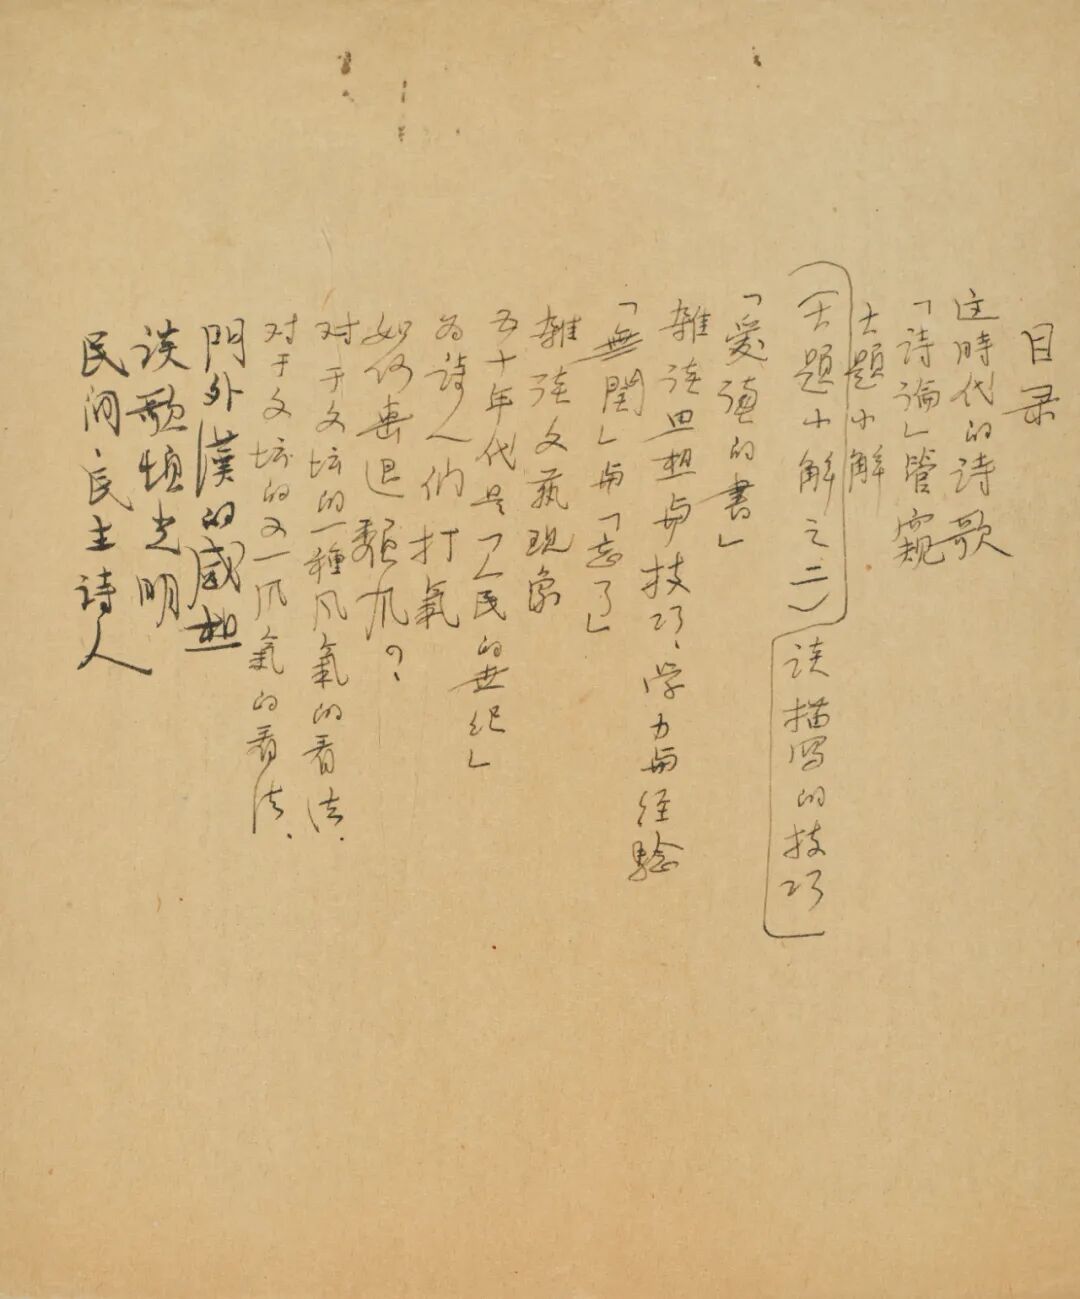 目录
这時代的诗歌
「詩論」管窺
大題小解
(大題小解之二) 谈描写的技巧
「愛讀的書」
雜谈思想与技巧、学力与经験
「無」与「忘了」
雜谈文藝現象
五十年代是「人民的世纪」
为詩人们打氣
如何退颓风?
对于文坛的一種风氣的看法.
对于文坛的又一风氣的看法.
門外漢的感想
谈歌颂光明
民间民主诗人